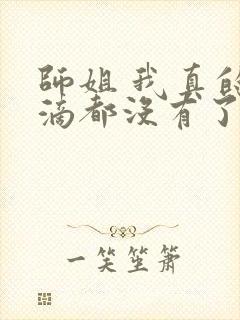 師姐我真的
滴都沒有了
一笑笙簫